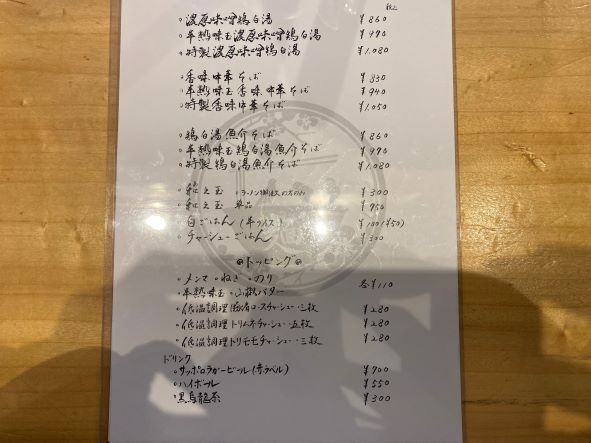 税込
・濃厚味噌鶏白湯 ¥860
・半熟味玉濃厚味噌鶏白湯 ¥990
・特製濃厚味噌鶏白湯 ¥1,080
・香味中華そば ¥830
・半熟味玉香味中華そば ¥940
・特製香味中華そば ¥1,050
・鶏白湯魚介そば ¥860
・半熟味玉鶏白湯魚介そば ¥990
・特製鶏白湯魚介そば ¥1,080
・和え玉 ・ラーメン御注文の方のみ ¥300
・和え玉 単品 ¥950
・白ごはん (半ライス) ¥100 (¥50)
・チャーシューごはん ¥300
@トッピング@
・メンマ ・ねぎ ・のり 各¥110
・半熟味玉 ・山椒バター
・低温調理 肩ロースチャーシュー・三枚 ¥280
・低温調理 トリムネチャーシュー・五枚 ¥280
・低温調理 トリモモチャーシュー・三枚 ¥280
ドリンク
・サッポロラガービール (赤ラベル) ¥700
・ハイボール ¥550
・黒烏龍茶 ¥300